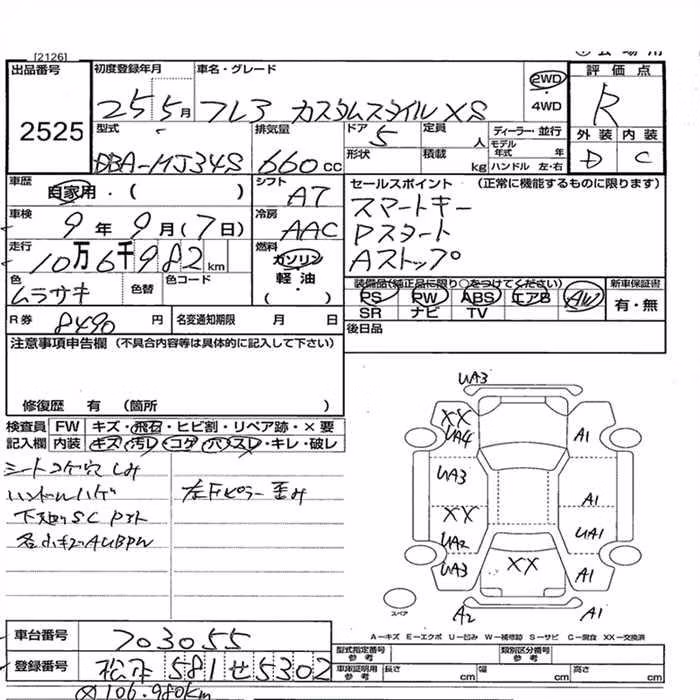 [2126]
出品番号 初度登録年月 車名・グレード 2WD・4WD 評価点
2525 25 5月 フレア カスタムスタイル XS R
型式 排気量 ドア 定員 ディーラー・並行 外装 内装
DBA-MJ34S 660cc 5 人 モデル年式 年 D C
形状 積載 kg ハンドル 左・右
車歴 自家用・( ) シフト AT セールスポイント (正常に機能するものに限ります)
車検 9年9月(7日) 冷房 AAC スマートキー
Pスタート
走行 10万6千982km 燃料 ガソリン・軽油・( ) Aストップ
色 ムラサキ 色替 色コード 装備品(純正品に限り○をつけてください) 新車保証書
PS PW ABS エアB AW 有・無
SR ナビ TV
R券 8490円 名変通知期限 月 日 後日品
注意事項申告欄 (不具合内容等は具体的に記入して下さい)
修復歴 有 (箇所 )
検査員 FW キズ・飛石・ヒビ割・リペア跡・×要
記入欄 内装 キズ・汚レ・コゲ・穴・スレ・キレ・破レ
シートコゲ穴 しみ
ハンドルハゲ 左Fピラー歪み
UA3
XX
UA4 A1
UA3 A1
XX
UA2 UA1
UA3 XX A1
スペア A2 A1
A-キズ E-エクボ U-凹み W-補修跡 S-サビ C-腐食 XX-交換済
車台番号 703055
型式指定番号 参考 類別区分番号 参考
登録番号 松本 581 せ 5302
車庫証明用 参考 長さ cm 幅 cm 高さ cm
106.980km